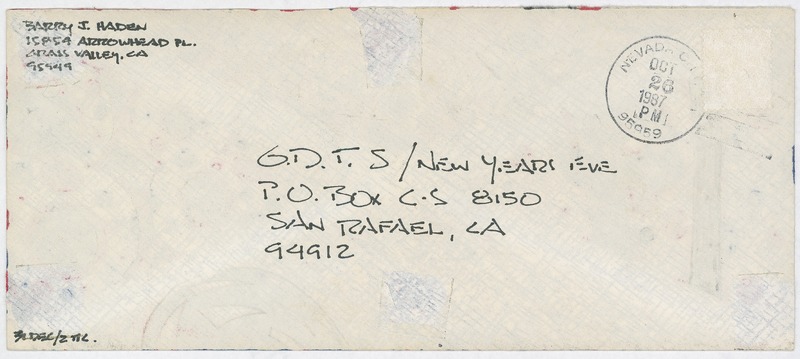 BARRY J. HADEN
15859 ARROWHEAD PL.
GRASS VALLEY, CA
95949
NEVADA
OCT
28
1987
PM
95959
G.D.T.S/NEW YEARS EVE
P.O. BOX C-S 8150
SAN RAFAEL, CA
94912
31 DEC/2 TIC.